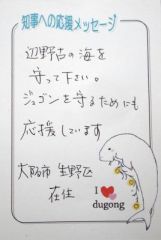 知事への応援メッセージ
辺野古の海を
守って下さい。
ジュゴンを守るためにも
応援しています
大阪市 生野区
在住
I ❤
dugong